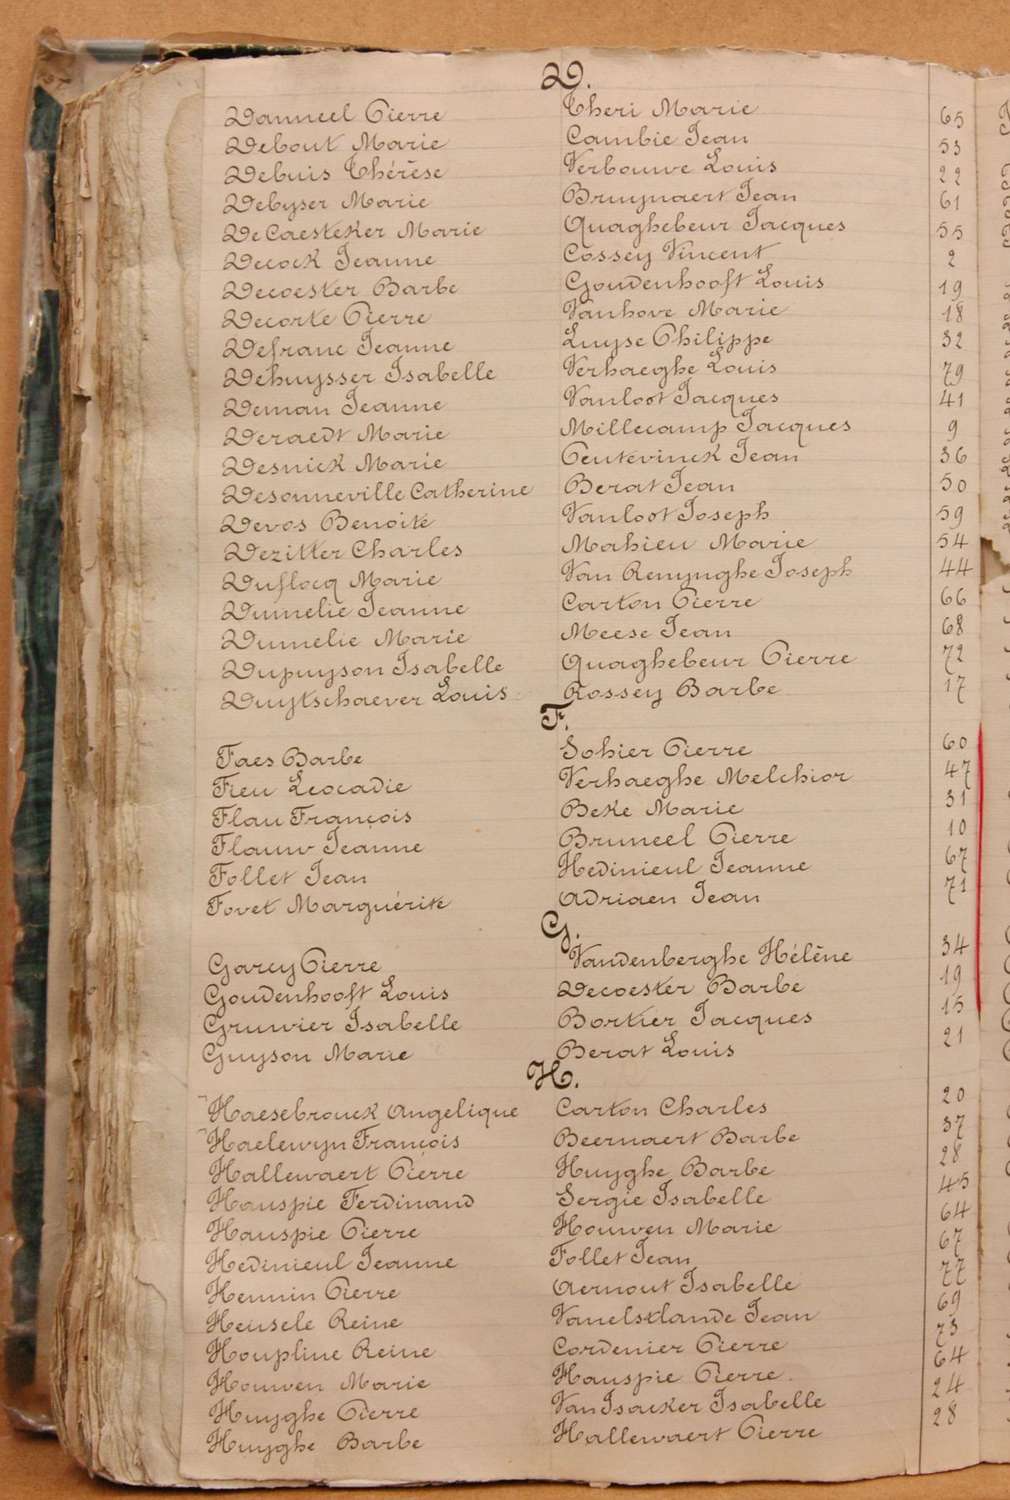 D.
Danneel Pierre Theri Marie 65
Debout Marie Cambie Jean 53
Debuis Thérèse Verbouwe Louis 22
Debyser Marie Bruynaert Jean 61
DeCaesteker Marie Quaghebeur Jacques 55
Decock Jeanne Cossey Vincent 2
Decoester Barbe Goudenhooft Louis 19
Decorte Pierre Vanhove Marie 18
Defranc Jeanne Luyse Philippe 32
Dehuysser Isabelle Verhaeghe Louis 79
Deman Jeanne Vanloot Jacques 41
Deraedt Marie Millecamp Jacques 9
Desnick Marie Peutevinck Jean 36
Desonneville Catherine Berat Jean 50
Devos Benoite Vanloot Joseph 59
Dezitter Charles Mahieu Marie 54
Duflocq Marie Van Renynghe Joseph 44
Dumelie Jeanne Carton Pierre 66
Dumelie Marie Meese Jean 68
Dupuyson Isabelle Quaghebeur Pierre 72
Duytschaever Louis Rossey Barbe 17
F.
Faes Barbe Sohier Pierre 60
Fieu Léocadie Verhaeghe Melchior 47
Flau François Beke Marie 31
Flauw Jeanne Bruneel Pierre 10
Follet Jean Hedinieul Jeanne 67
Fovet Marguérite Adriaen Jean 71
G.
Garcy Pierre Vandenberghe Hélène 34
Goudenhooft Louis Decoester Barbe 19
Gruwier Isabelle Bortier Jacques 15
Guyson Marie Berat Louis 21
H.
Haesebrouck Angelique Carton Charles 20
Haelewyn François Beernaert Barbe 37
Hallewaert Pierre Huyghe Barbe 28
Hauspie Ferdinand Sergie Isabelle 45
Hauspie Pierre Houwen Marie 64
Hedinieul Jeanne Follet Jean 67
Hennin Pierre Aernout Isabelle 77
Heusele Reine Vanelslande Jean 69
Houpline Reine Cordenier Pierre 73
Houwen Marie Hauspie Pierre 64
Huyghe Pierre Van Isacker Isabelle 24
Huyghe Barbe Hallewaert Pierre 28